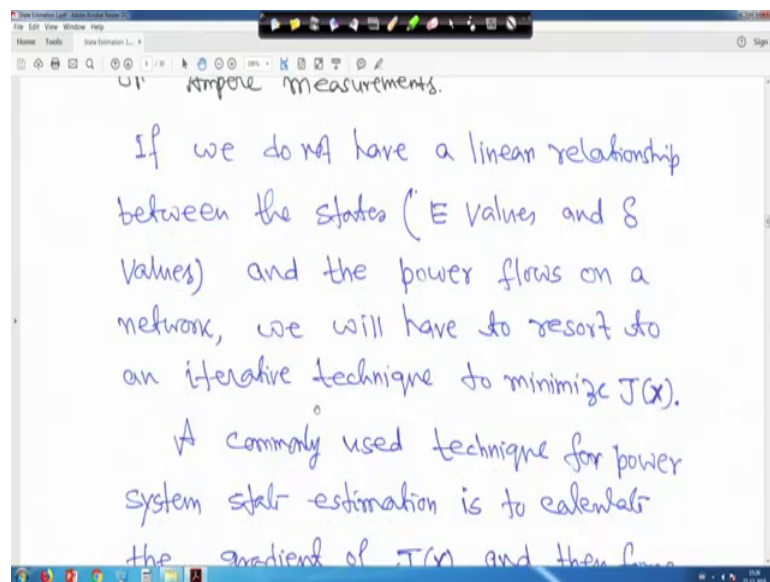 State Estimation 1.pdf - Adobe Acrobat Reader DC
File Edit View Window Help
Home Tools State Estimation 1... × Sign
or Ampere measurements.
If we do not have a linear relationship
between the states (E values and δ
values) and the power flows on a
network, we will have to resort to
an iterative technique to minimize J(x).
A commonly used technique for power
system state estimation is to calculate
the gradient of J(x) and then